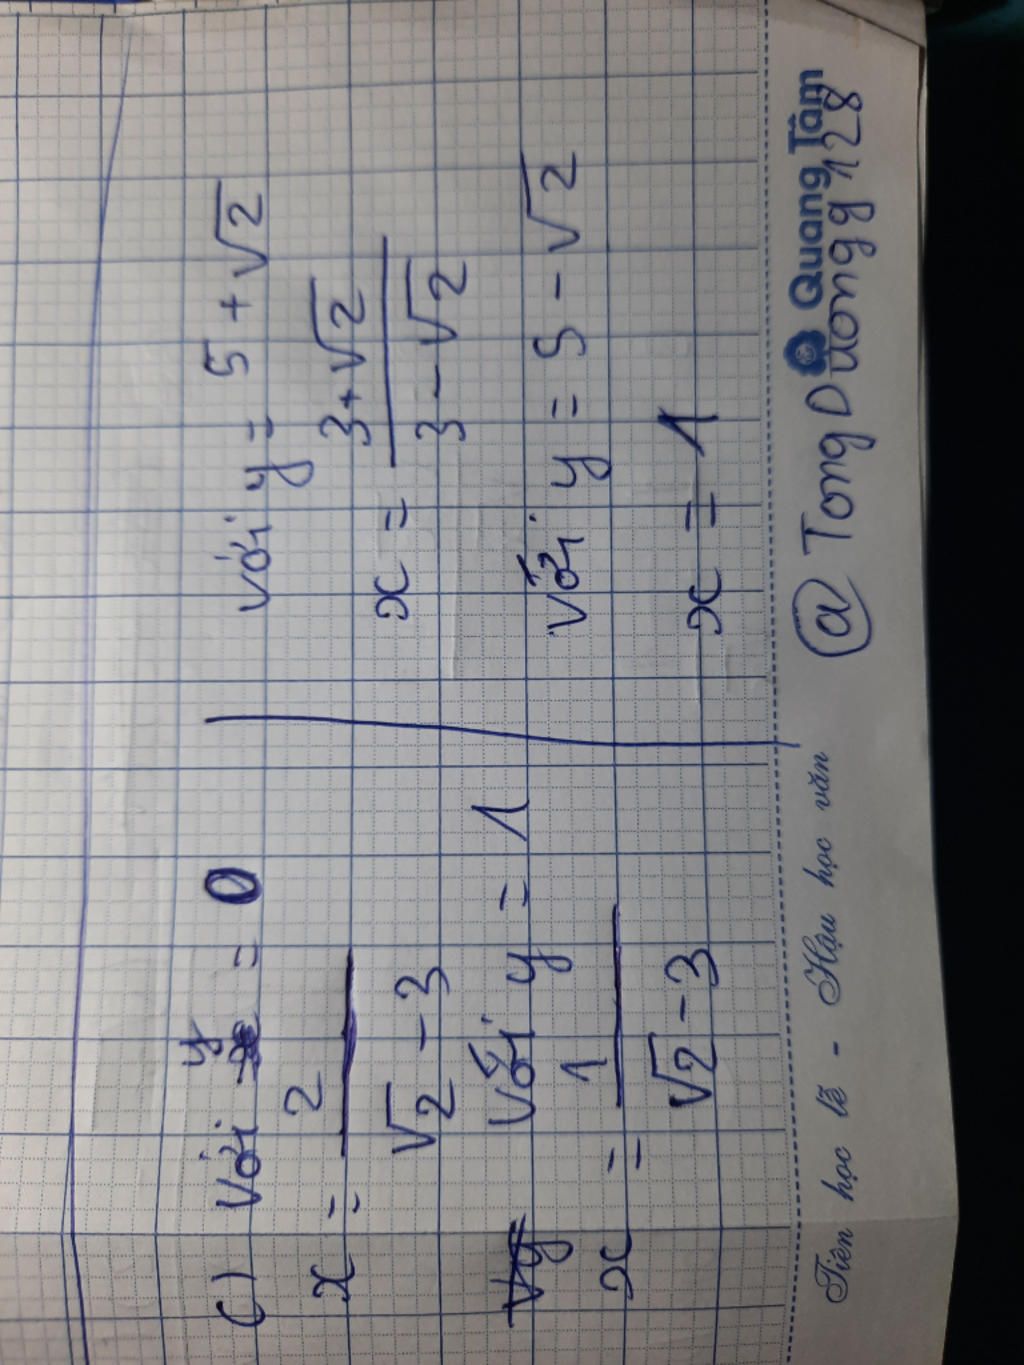 c) Với y = 0
x = 2 / √2 - 3
Với y = 1
x = 1 / √2 - 3
với y = 5 + √2
x = 3 + √2 / 3 - √2
với y = 5 - √2
x = 1
Tiên học lễ - Hậu học văn
Quang Tâm
@ TongDuongg128